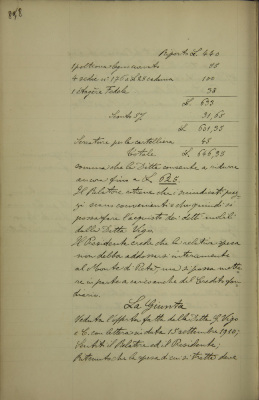 Riporto L. 450
1 poltrona
4 sedie n° 176 a L 25 caduna 100
1 38
L. 633
Sconto 5% 31,65
L. 601,35
Serratura per la cartelliera 45
Totale L. 646,35
somma che la Ditta consente a ridurre
ancora fino a L. 625.
Il Relatore ritiene che i suindicati prez-
zi siano convenienti e che quindi si
possa fare l'acquisto dei detti mobili
dalla Ditta Vigo
Il Presidente crede che la relativa spesa
non debba addossarsi interamente
al Monte di Pietà, ma si possa mette-
re in parte a carico anche del Credito fon-
diario.
La Giunta
Veduta l'offerta fatta dalla Ditta G. Vigo
e C. con lettera in data 15 settembre 1910;
Uditi il Relatore ed il Presidente;
Ritenuto che la spesa di cui si tratta deve